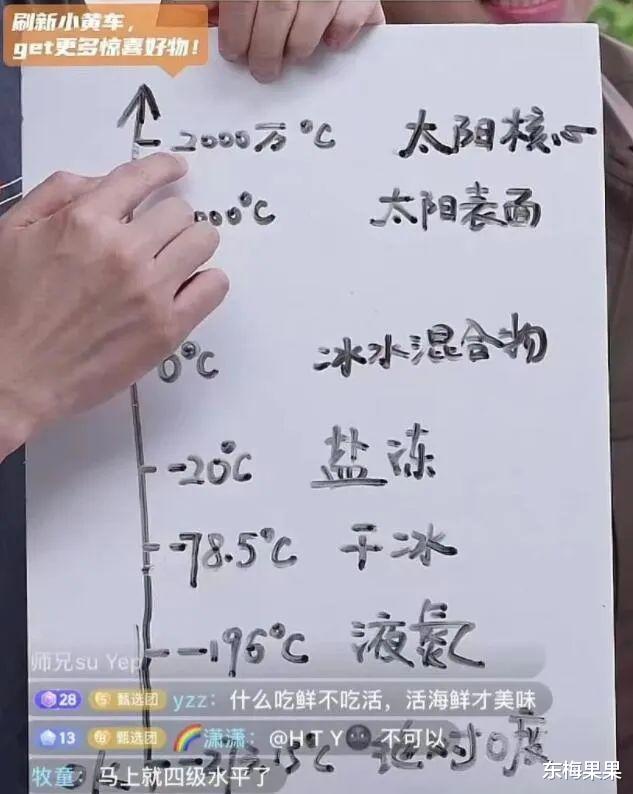 刷新小黄车，
get更多惊喜好物！
2000万°C 太阳核心
000°C 太阳表面
0°C 冰水混合物
-20°C 盐冻
-78.5°C 干冰
-196°C 液氮
师兄su Yep
28 甄选团 yzz：什么吃鲜不吃活，活海鲜才美味
13 甄选团 潇潇：@H T Y 不可以
15°C 0度
牧童：马上就四级水平了
东梅果果